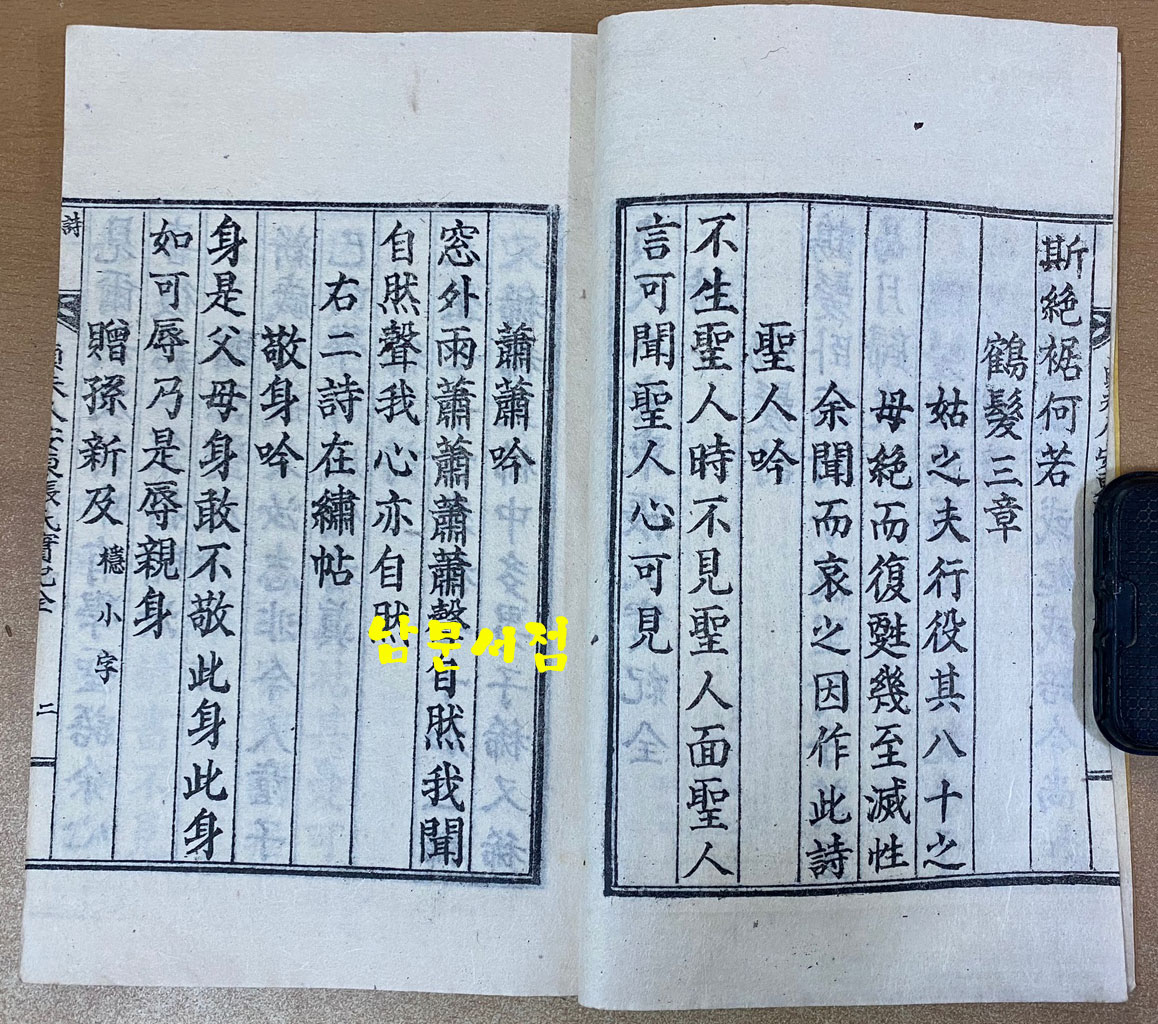 斯絶裾何若
鶴髮三章
姑之夫行役其八十之
母絶而復甦幾至滅性
余聞而哀之因作此詩
聖人吟
不生聖人時不見聖人面聖人
言可聞聖人心可見
蕭蕭吟
窓外雨蕭蕭蕭蕭聲自然我聞
自然聲我心亦自然
右二詩在繡帖
敬身吟
身是父母身敢不敬此身此身
如可辱乃是辱親身
贈孫新及 檼小字
詩
張氏實紀全
二
남문서점